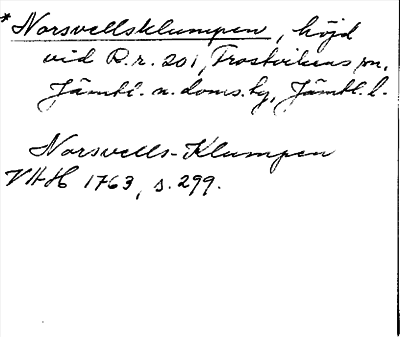 *Norsvellsklumpen, höjd
vid R.r. 201, Frostvikens sn,
Jämtl. n. doms. hg, Jämtl. l.
Norsvells-Klumpen
VHH 1763, s. 299.